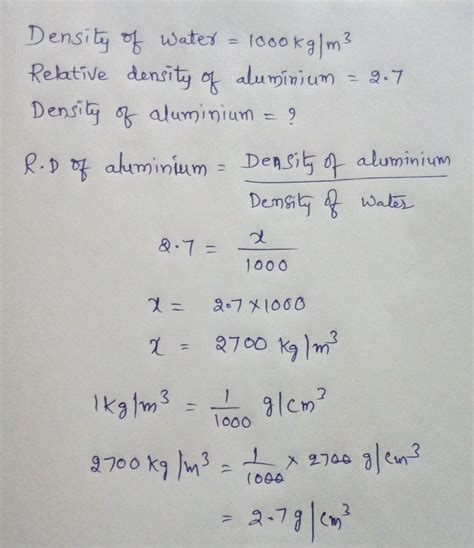 Density of water = 1000 kg/m³
Relative density of aluminium = 2.7
Density of aluminium = ?
R.D of aluminium = Density of aluminium / Density of water
2.7 = x / 1000
x = 2.7 × 1000
x = 2700 kg/m³
1 kg/m³ = 1/1000 g/cm³
2700 kg/m³ = 1/1000 × 2700 g/cm³
= 2.7 g/cm³